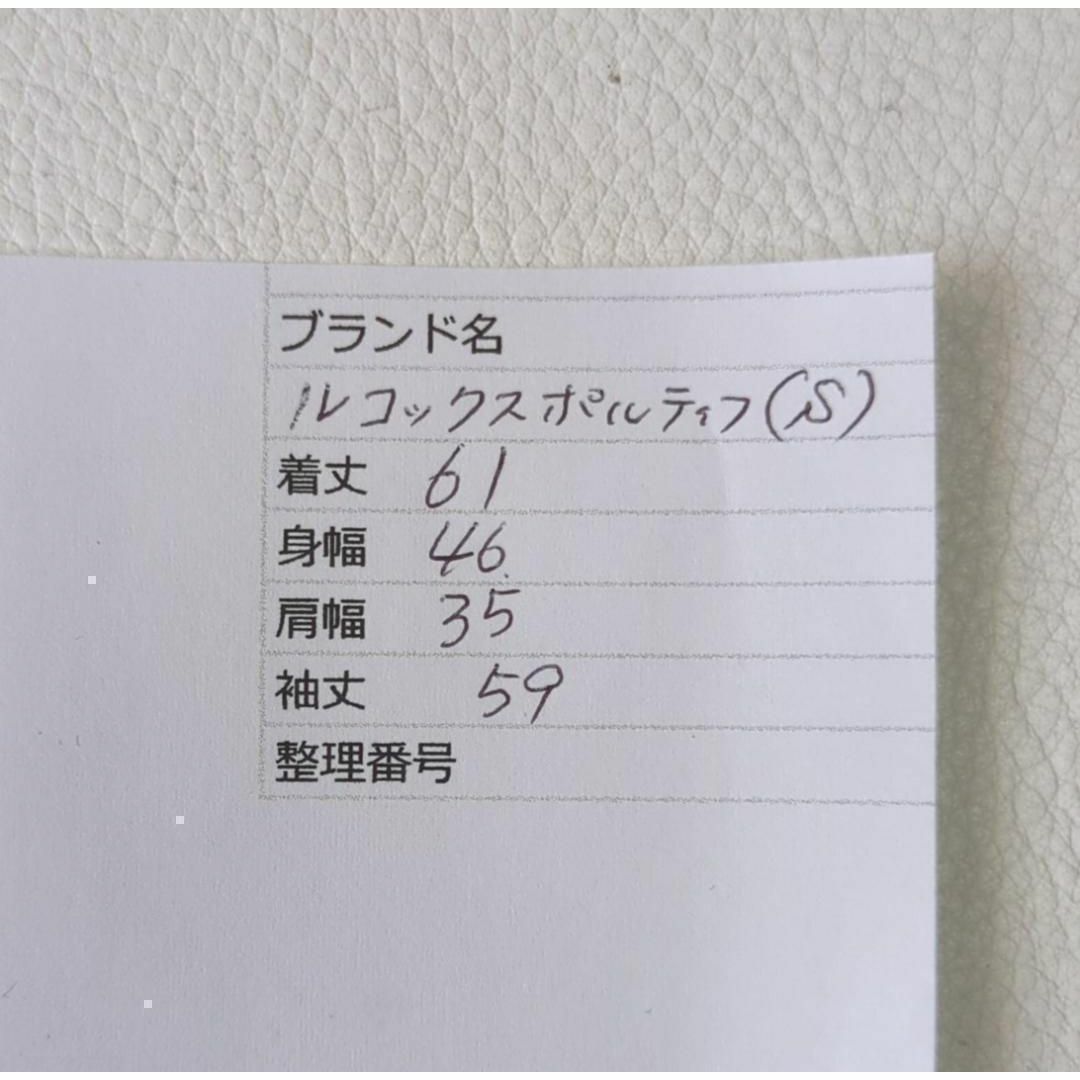 ブランド名
ルコックスポルティフ(S)
着丈 61
身幅 46
肩幅 35
袖丈 59
整理番号